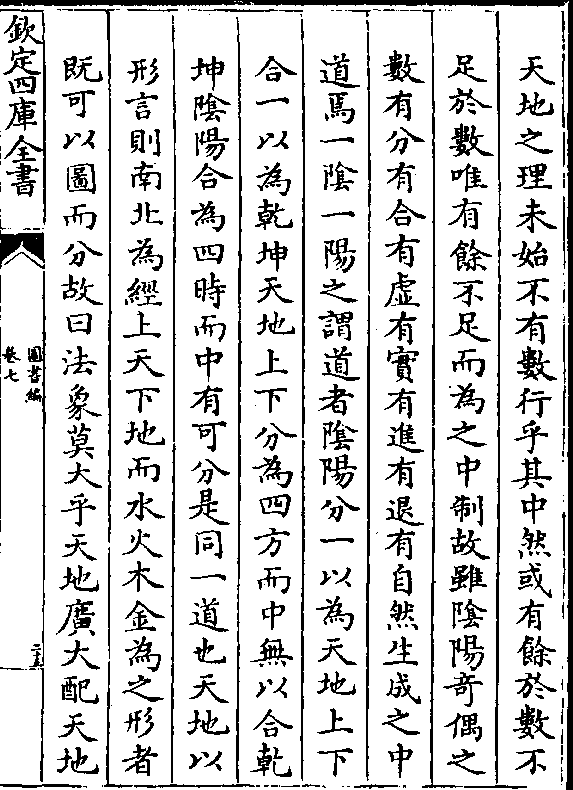 天地之理未始不有數行乎其中然或有餘於數不
足於數唯有餘不足而為之中制故雖陰陽奇偶之
數有分有合有虛有實有進有退有自然生成之中
道焉一陰一陽之謂道者陰陽分一以為天地上下
合一以為乾坤天地上下分為四方而中無以合乾
坤陰陽合為四時而中有可分是同一道也天地以
形言則南北為經上天下地而水火木金為之形者
既可以圖而分故曰法象莫大乎天地廣大配天地
欽定四庫全書
圖書編
卷七
二十五